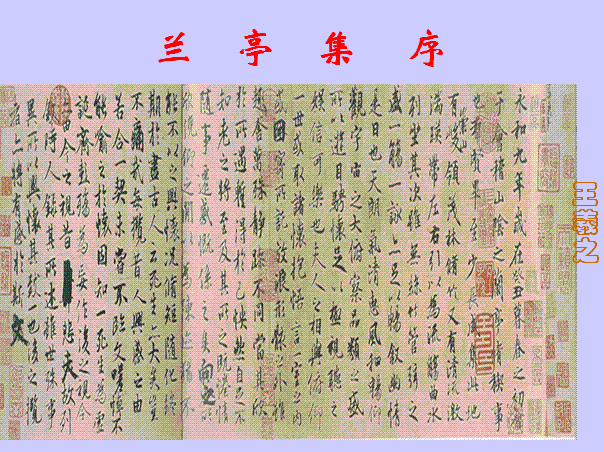 兰亭集序
王羲之
永和九年歲在癸丑暮春之初會
于會稽山陰之蘭亭脩稧事
也羣賢畢至少長咸集此地
有崇山峻領茂林脩竹又有清流激
湍暎帶左右引以為流觴曲水
列坐其次雖無絲竹管弦之
盛一觴一詠亦足以暢敘幽情
是日也天朗氣清惠風和暢仰
觀宇宙之大俯察品類之盛
所以遊目騁懷足以極視聽之
娛信可樂也夫人之相與俯仰
一世或取諸懷抱悟言一室之內
或因寄所託放浪形骸之外雖
趣舍萬殊靜躁不同當其欣
於所遇蹔得於己怏然自足不
知老之將至及其所之既惓情
隨事遷感慨係之矣向之所
欣俛仰之閒以為陳迹猶不
能不以之興懷況脩短隨化終
期於盡古人云死生亦大矣豈
不痛哉每攬昔人興感之由
若合一契未嘗不臨文嗟悼不
能喻之於懷固知一死生為虛
誕齊彭殤為妄作後之視今
亦由今之視昔悲夫故列
敘時人錄其所述雖世殊事
異所以興懷其致一也後之攬
者亦將有感於斯文